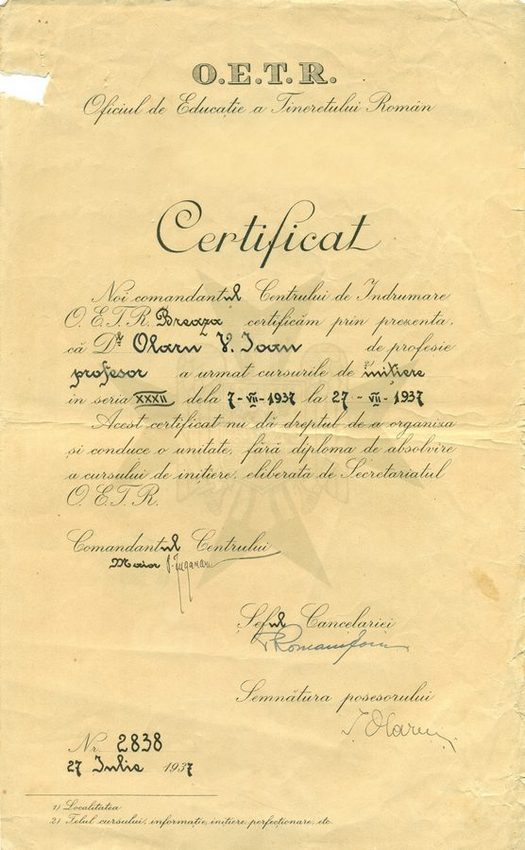 O.E.T.R.
Oficiul de Educație a Tineretului Român
Certificat
Noi comandantul Centrului de Indrumare
O.E.T.R. Breaza certificăm prin prezenta,
că Dl Olaru V. Ioan de profesie
profesor a urmat cursurile de inițiere
in seria XXXII dela 7-VII-1937 la 27-VII-1937
Acest certificat nu dă dreptul de a organiza
și conduce o unitate, fără diploma de absolvire
a cursului de inițiere, eliberată de Secretariatul
O.E.T.R.
Comandantul Centrului
Maior
Șeful Cancelariei
Semnătura posesorului
I. Olaru
Nr. 2838
27 Iulie 1937
1) Localitatea
2) Felul cursului, informație, inițiere, perfecționare, etc.